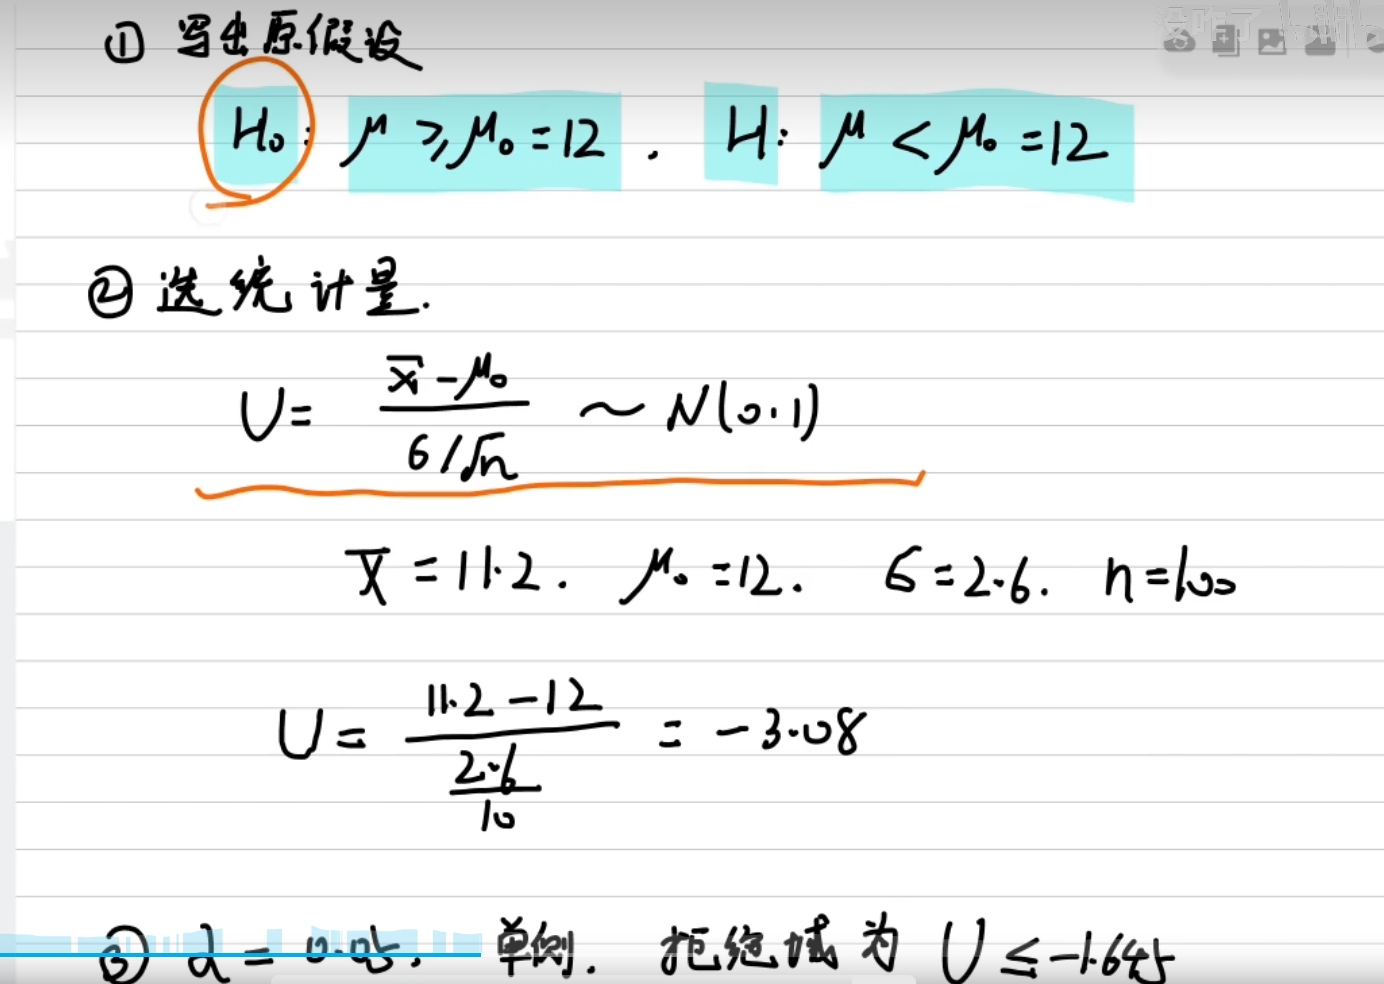 没咋了 bilibili
① 写出原假设
H₀: μ ⩾ μ₀ = 12 . H: μ < μ₀ = 12
② 选统计量.
U = (x̄ - μ₀) / (6/√n) ~ N(0.1)
x̄ = 11.2. μ₀ = 12. 6 = 2.6. n = 100
U = (11.2 - 12) / (2.6/10) = -3.08
③ α = 0.05. 单侧. 拒绝域为 U ≤ -1.645